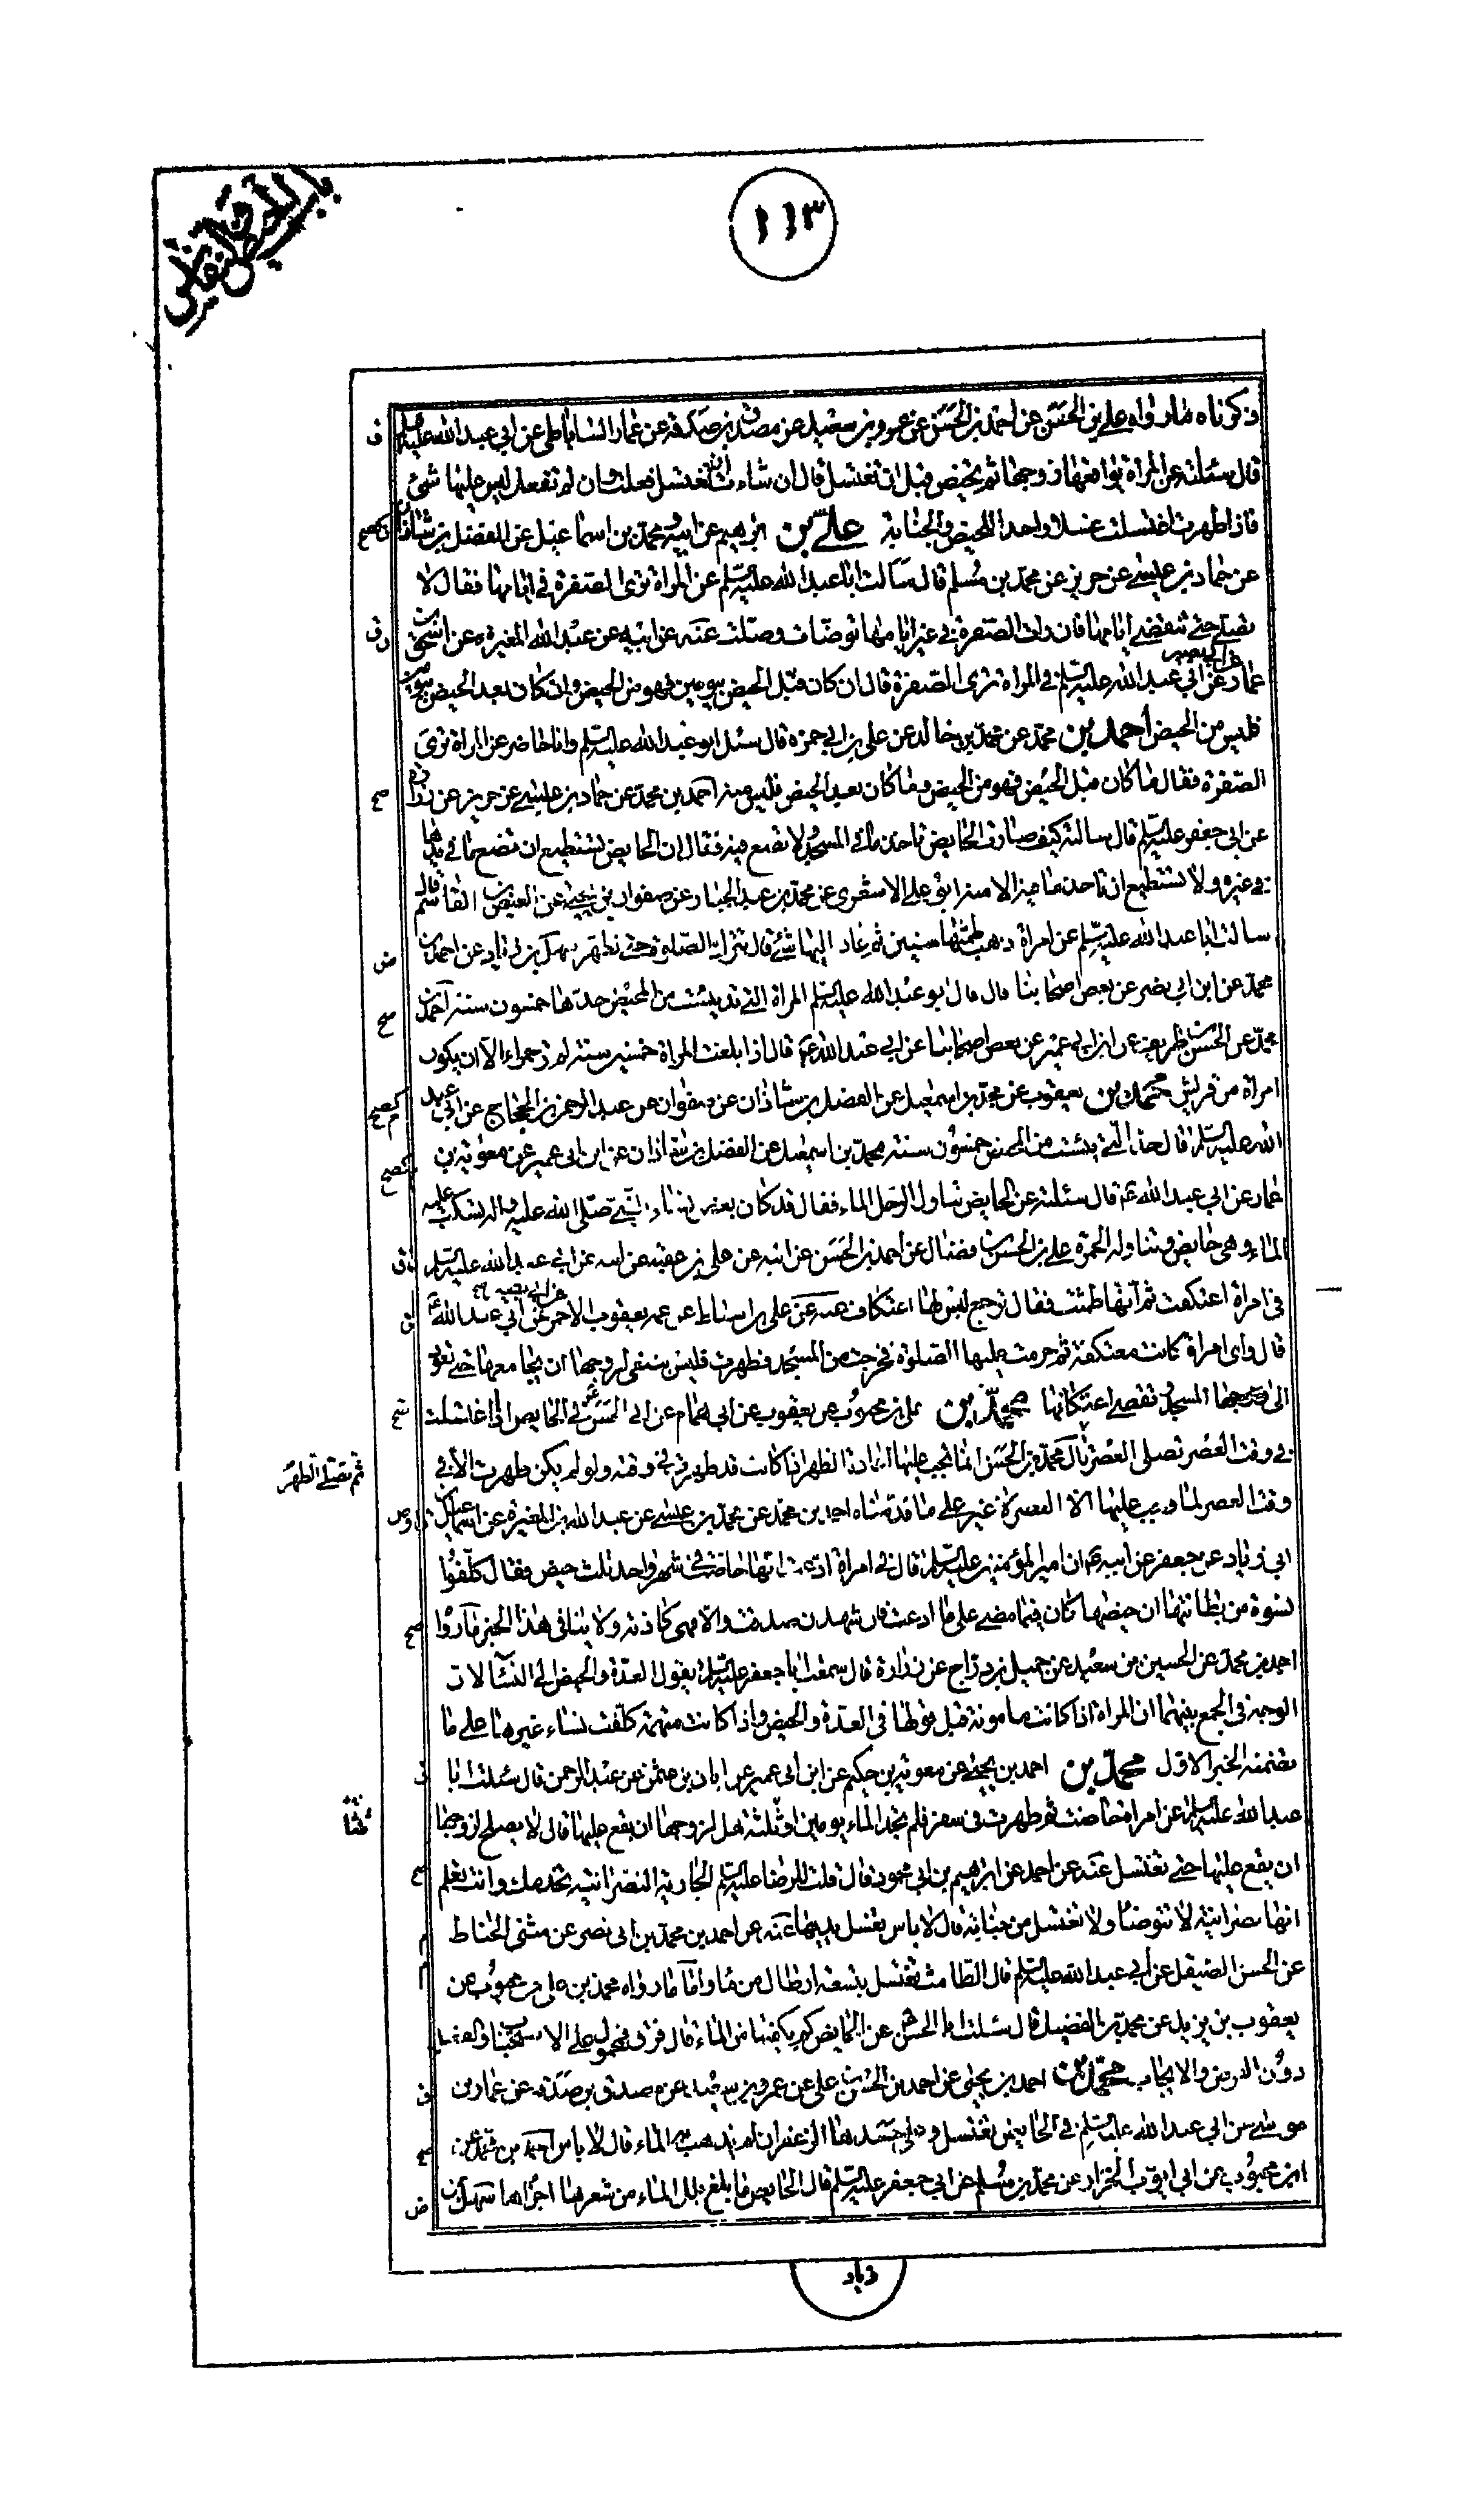 باب الحيض والنفاس
١١٣
ذكرناه ما رواه علي بن الحسن عن احمد بن الحسن عن عمرو بن سعيد عن مصدق بن صدقة عن عمار الساباطي عن ابي عبد الله عليه السلم
قال سئلته عن المراة يواقعها زوجها ثم تحيض قبل ان تغتسل قال ان شاءت ان تغتسل فعلت وان لم تفعل ليس عليها شئ
فاذا طهرت اغتسلت غسلا واحدا للحيض والجنابة علي بن ابرهيم عن ابيه ومحمد بن اسماعيل عن الفضل بن شاذان
عن حماد بن عيسى عن حريز عن محمد بن مسلم قال سالت ابا عبد الله عليه السلم عن المراة ترى الصفرة في ايامها فقال لا
تصلي حتى تنقضي ايامها فان رات الصفرة في غير ايامها توضات وصلت عنه عن ابيه عن عبد الله المغيرة عن اسحق بن
عمار عن ابي بصير عن ابي عبد الله عليه السلم في المراة ترى الصفرة قال ان كان قبل الحيض بيومين فهو من الحيض وان كان بعد الحيض بيومين
فليس من الحيض احمد بن محمد عن محمد بن خالد عن علي بن ابي حمزه قال سئل ابو عبد الله عليه السلم وانا حاضر عن المراة ترى
الصفرة فقال ما كان قبل الحيض فهو من الحيض وما كان بعد الحيض فليس منه احمد بن محمد عن حماد بن عيسى عن حريز عن زرارة
عن ابي جعفر عليه السلم قال سالته كيف صارت الحايض تاخذ ما في المسجد ولا تضع فيه فقال ان الحايض تستطيع ان تضع ما في يدها
في غيره ولا تستطيع ان تاخذ ما فيه الا منه ابو علي الاشعري عن محمد بن عبد الجبار عن صفوان بن يحيى عن العيص بن القاسم قال
سالت ابا عبد الله عليه السلم عن امراة ذهب طمثها سنين ثم عاد اليها شئ قال تترك الصلوة حتى تطهر سهل بن زياد عن احمد بن
محمد عن ابن ابي نصر عن بعض اصحابنا قال قال ابو عبد الله عليه السلم المراة التي قد يئست من المحيض حدها خمسون سنة احمد بن
محمد عن الحسن بن ظريف عن ابن ابي عمير عن بعض اصحابنا عن ابي عبد الله ع قال اذا بلغت المراة خمسين سنة لم تر حمراء الا ان يكون
امراة من قريش محمد بن يعقوب عن محمد بن اسمعيل عن الفضل بن شاذان عن صفوان عن عبد الرحمن بن الحجاج عن ابي عبد
الله عليه السلم قال حد التي يئست من المحيض خمسون سنة محمد بن اسمعيل عن الفضل بن شاذان عن ابن ابي عمير عن معوية بن
عمار عن ابي عبد الله ع قال سئلته عن الحايض تناول الرجل الماء فقال قد كان بعض نساء النبي صلى الله عليه واله تسكب عليه
الماء وهي حايض وتناوله الخمرة علي بن الحسن بن فضال عن احمد بن الحسن عن ابيه عن علي بن عقبه عن ابيه عن ابي عبد الله عليه السلم
في امراة اعتكفت ثم انها طمثت فقال ترجع ليس لها اعتكاف عنه عن علي بن اسباط عن عمه يعقوب الاحمر عن ابي بصير عن ابي عبد الله ع
قال واي امراة كانت معتكفة ثم حرمت عليها الصلوة فخرجت من المسجد فطهرت فليس ينبغي لزوجها ان يجامعها حتى تعود
الى المسجد وتقضي اعتكافها محمد بن علي بن محبوب عن يعقوب عن ابي همام عن ابي الحسن ع في الحايض اذا اغتسلت
في وقت العصر تصلي العصر ثم تصلي الظهر قال محمد بن الحسن انما تجب عليها اعادة الظهر اذا كانت قد طهرت في وقته ولو لم يكن طهرت الا في
وقت العصر لما وجب عليها الا العصر لا غير على ما قدمناه احمد بن محمد عن محمد بن عيسى عن عبد الله بن المغيرة عن اسماعيل بن
ابي زياد عن جعفر عن ابيه ع ان امير المؤمنين عليه السلم قال في امراة ادعت انها حاضت في شهر واحد ثلث حيض فقال كلفوا
نسوة من بطانتها ان حيضها كان فيما مضى على ما ادعت فان شهدن صدقت والا فهي كاذبة ولا ينافي هذا الخبر ما رواه
احمد بن محمد عن الحسين بن سعيد عن جميل بن دراج عن زرارة قال سمعت ابا جعفر عليه السلم يقول العدة والحيض الى النساء لان
الوجه في الجمع بينهما ان المراة اذا كانت مامونة قبل قولها في العدة والحيض واذا كانت متهمة كلفت نساء غيرها على ما
تضمنه الخبر الاول محمد بن احمد بن يحيى عن معوية بن حكيم عن ابن ابي عمير عن ابان بن عثمن عن عبد الرحمن قال سئلت ابا
عبد الله عليه السلم عن امراة حاضت ثم طهرت في سفر فلم تجد الماء يومين او ثلثة هل لزوجها ان يقع عليها قال لا يصلح لزوجها
ان يقع عليها حتى تغتسل عنه عن احمد عن ابرهيم بن ابي محمود قال قلت للرضا عليه السلم الجارية النصرانية تخدمك وانت تعلم
انها نصرانية لا تتوضأ ولا تغتسل من جنابة قال لا باس تغسل يديها عنه عن احمد بن محمد بن ابي نصر عن مثنى الحناط
عن الحسن الصيقل عن ابي عبد الله عليه السلم قال الطامث تغتسل بتسعة ارطال من ماء واما ما رواه محمد بن علي بن محبوب عن
يعقوب بن يزيد عن محمد بن الفضيل قال سئلت ابا الحسن ع عن الحايض كم يكفيها من الماء قال فرق فمحمول على الاستحباب والفضل
دون الفرض والايجاب محمد بن احمد بن يحيى عن احمد بن الحسن بن علي عن عمرو بن سعيد عن مصدق بن صدقة عن عمار بن
موسى عن ابي عبد الله عليه السلم في الحايض تغتسل وعلى جسدها الزعفران لم يذهب به الماء قال لا باس احمد بن محمد عن
ابن محبوب عن ابي ايوب الخزاز عن محمد بن مسلم عن ابي جعفر عليه السلم قال الحايض ما بلغ بلل الماء من شعرها اجزاها سهل بن
زياد